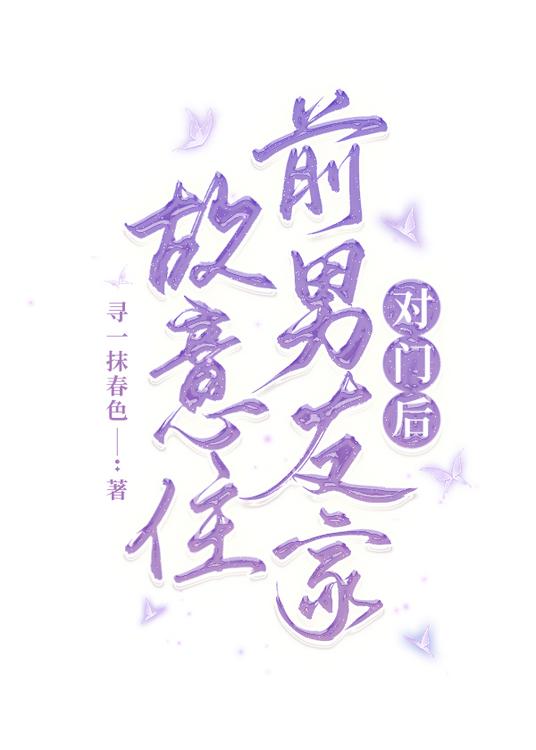 故意住
前男友家
对门后
寻一抹春色——:著